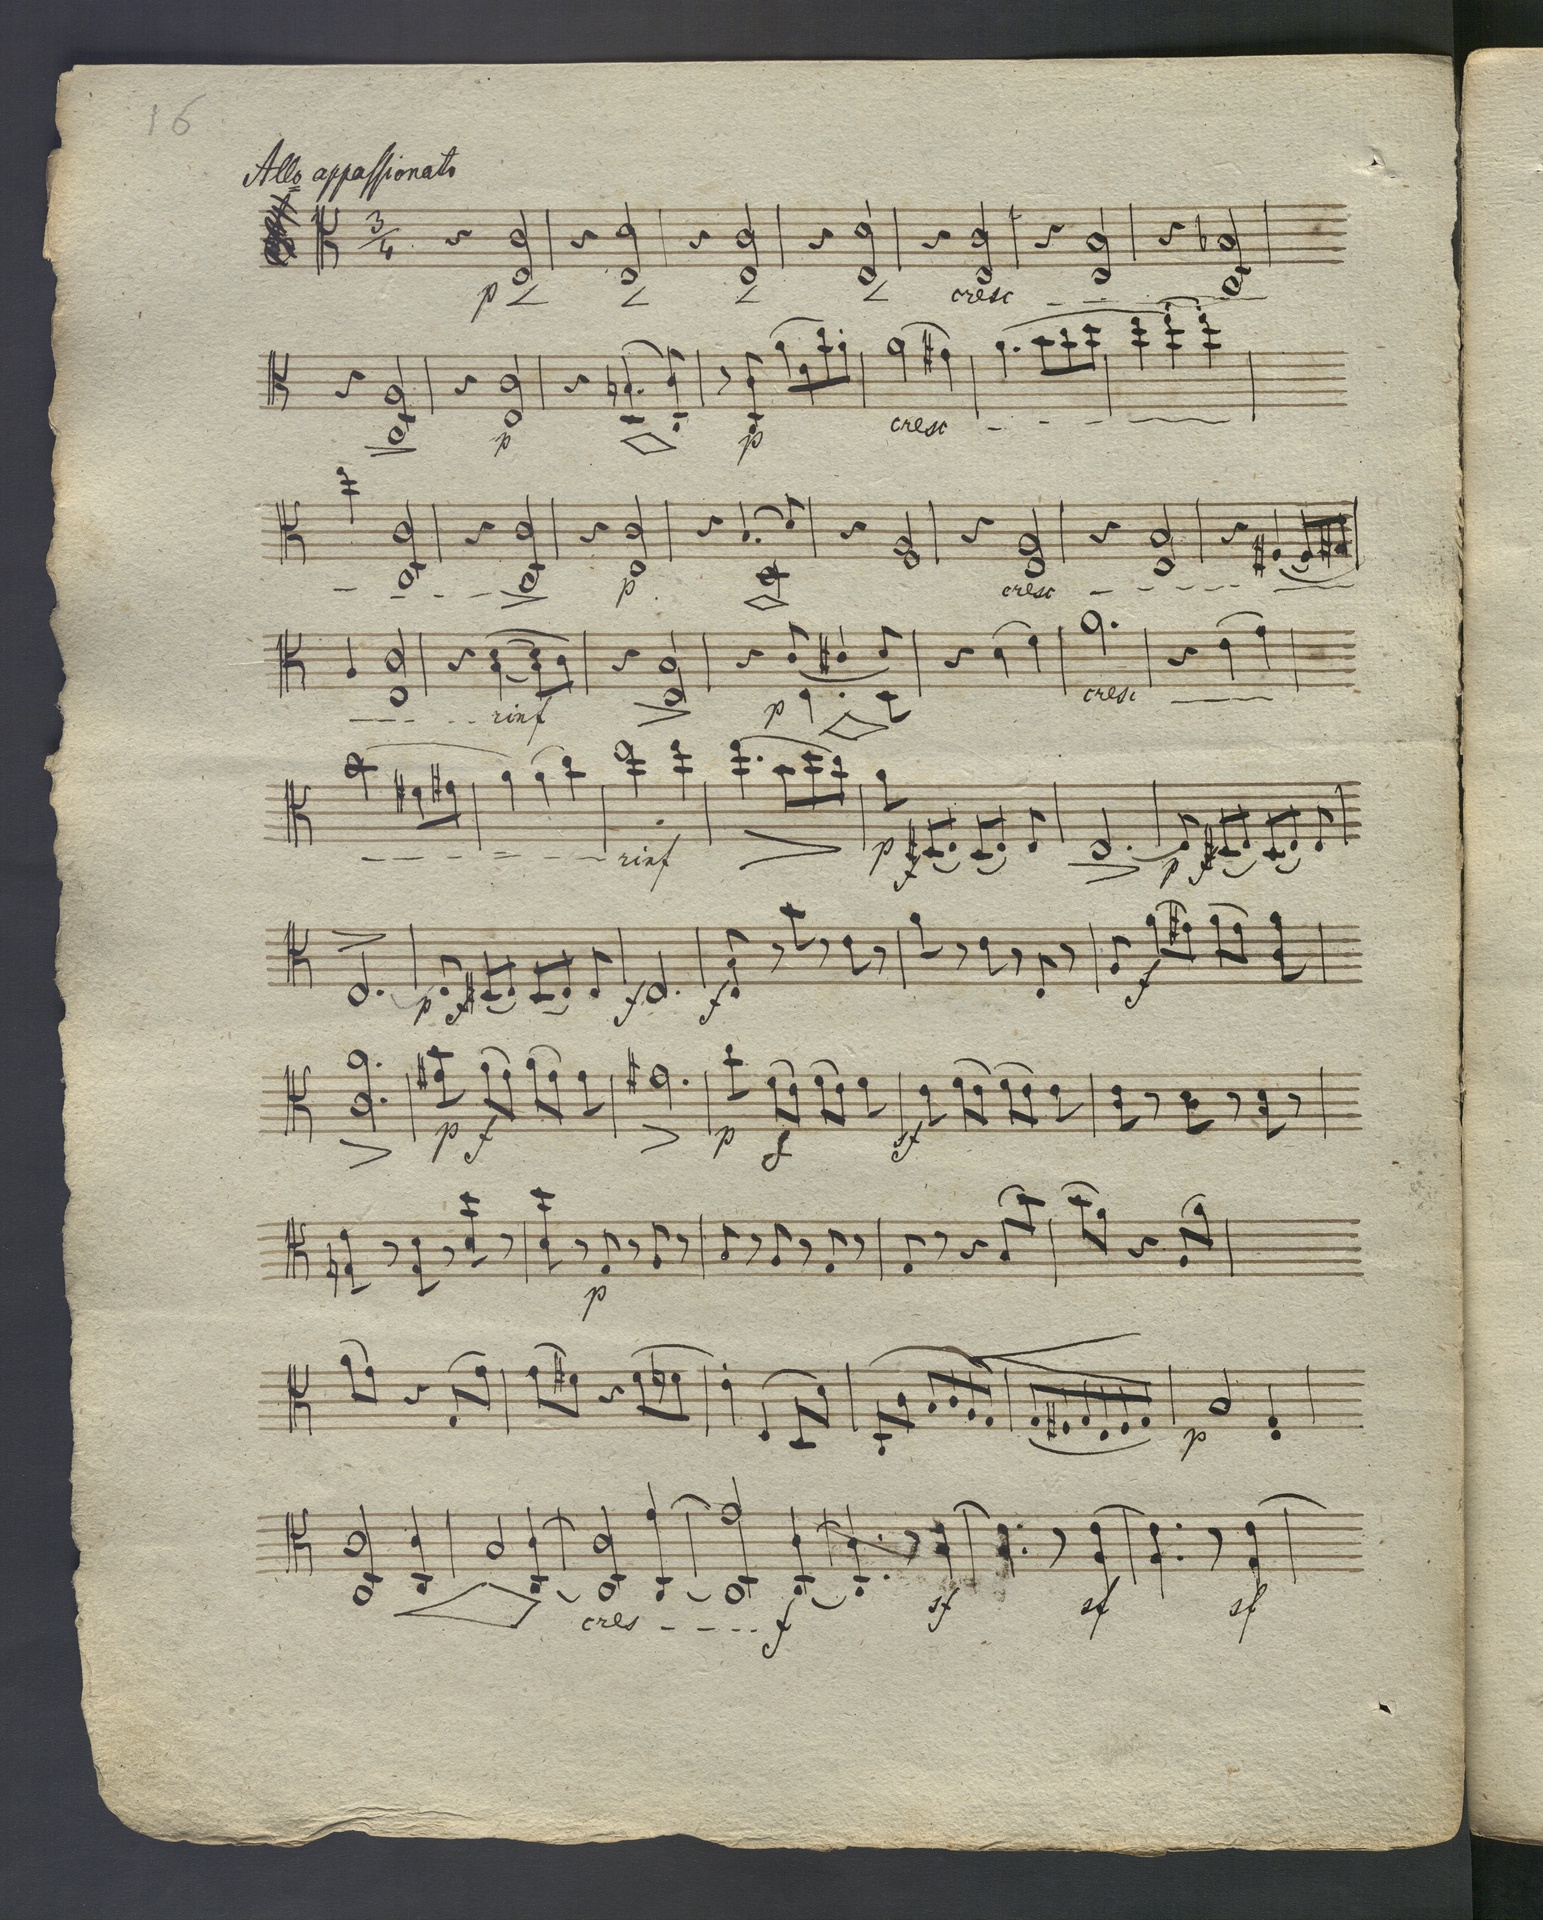 16
Allo appassionato
3/4
p cresc
p p cresc
p cresc
rinf p cresc
rinf p f p f
p f f f f
p f p f sf
p
p
cres f sf sf sf